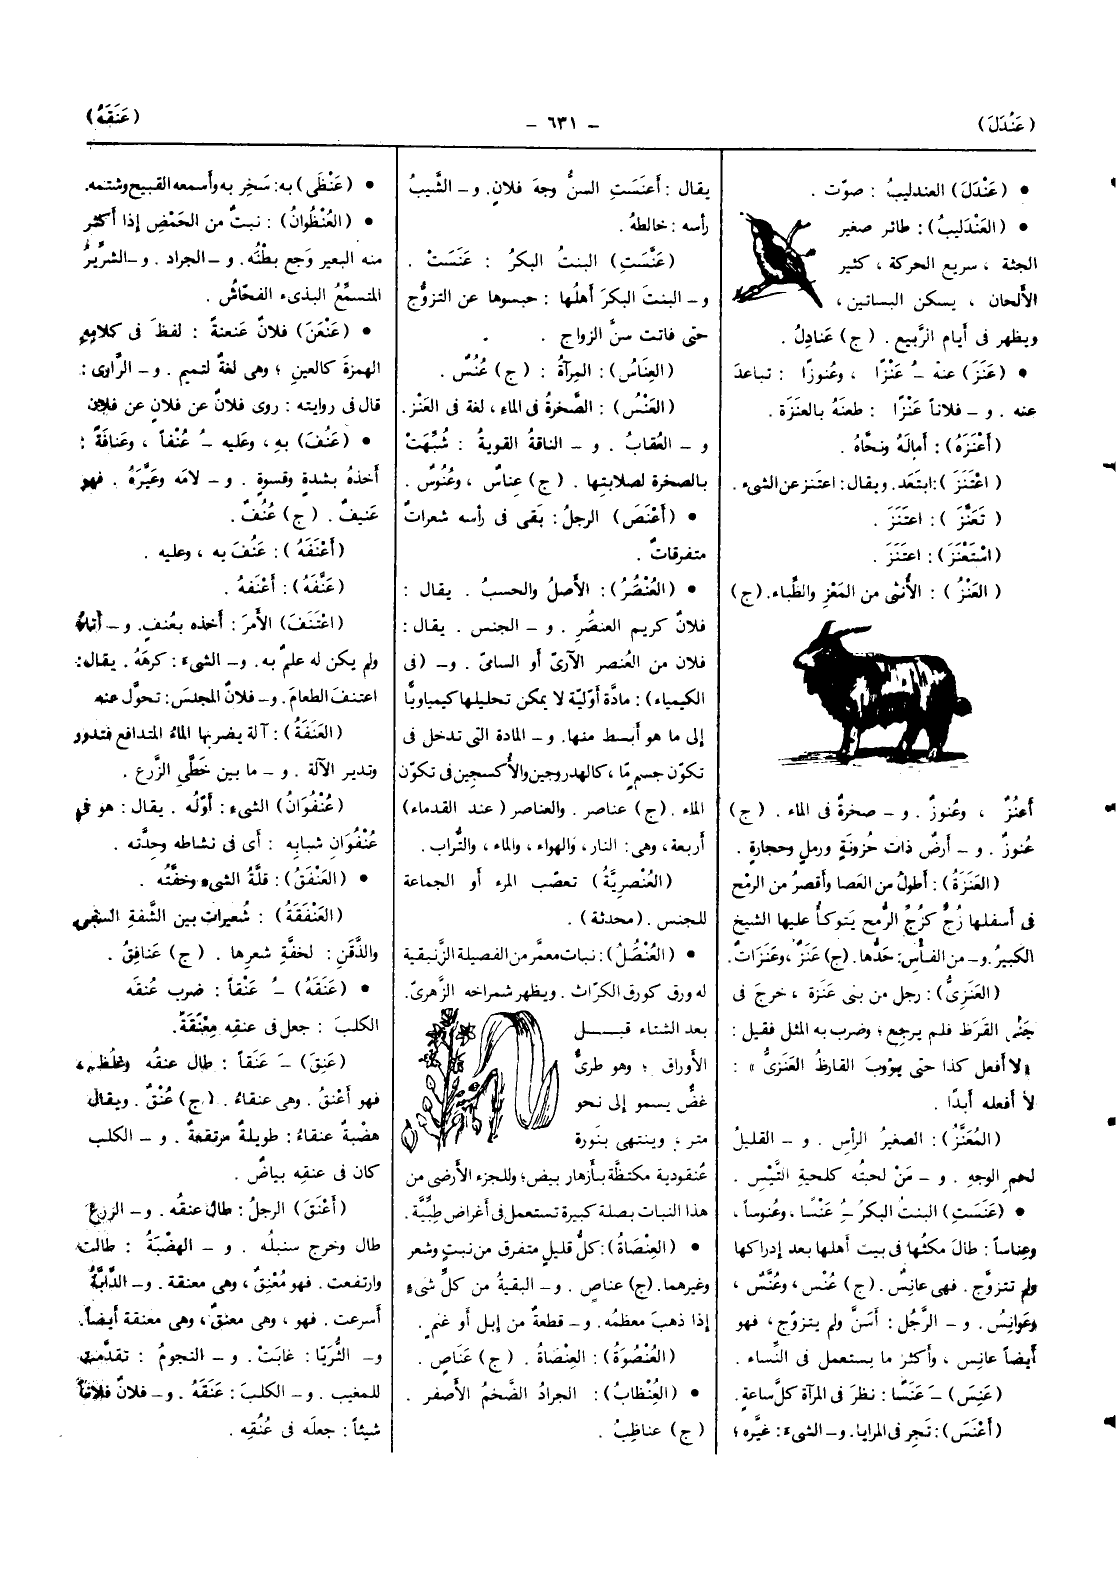 (عَنْدَلَ)
- ٦٣١ -
(عَنَقَهُ)
• (عَنْدَلَ) العندليبُ : صوّت .
• (العَنْدَلِيبُ) : طائر صغير
الجثة ، سريع الحركة ، كثير
الألحان ، يسكن البساتين ،
ويظهر فى أيام الرَّبيع . (ج) عَنادِلُ .
• (عَنَزَ) عنه ـُ عَنْزًا ، وعُنوزًا : تباعدَ
عنه . و ــ فلاناً عَنْزًا : طعنَهُ بالعنَزَة .
(أعْنَزَهُ) : أمالَهُ ونحَّاهُ .
(اعْتَنَزَ) : ابتَعَد. ويقال : اعتنز عن الشىء .
(تَعَنَّزَ) : اعتَنَزَ .
(اسْتَعْنَزَ) : اعتَنَزَ .
(العَنْزُ) : الأُنثى من المَعْزِ والظِّباء. (ج)
أعنُزٌ ، وعُنوزٌ . و ــ صخرةٌ فى الماء . (ج)
عُنوزٌ . و ــ أرضٌ ذات حُزونَةٍ ورملٍ وحجارةٍ .
(العَنَزَةُ) : أطولُ من العصا وأقصرُ من الرمْح
فى أسفلها زُجٌّ كزُجِّ الرُّمح يَتوكأ عليها الشيخ
الكبيرُ. و ــ من الفأْسِ : حَدُّها. (ج) عَنَزٌ ، وعَنَزَاتٌ .
(العَنَزِىُّ) : رجل من بنى عَنَزة ، خرجَ فى
جَنْىِ القَرَظ فلم يرجع ؛ وضرب به المثل فقيل :
« لا أفعل كذا حتى يؤوبَ القارظُ العَنَزىُّ » :
لا أفعله أبدًا .
(المُعَنَّزُ) : الصغيرُ الرأسِ . و ــ القليلُ
لحم الوجهِ . و ــ مَنْ لحيتُه كلحيةِ التَّيْسِ .
• (عَنَسَتِ) البنتُ البكرُ ـُِ عَنْسًا ، وعُنوساً ،
وعِناساً : طالَ مكثُها فى بيت أهلها بعد إدراكها
ولم تتزوَّج . فهى عانِسٌ. (ج) عُنْس ، وعُنَّسٌ ،
وعَوانِسُ . و ــ الرَّجُل : أسَنَّ ولم يتزوّج ، فهو
أيضاً عانِس ، وأكثر ما يستعمل فى النِّساء .
(عَنِسَ) ـَ عَنَسًا : نظرَ فى المرآة كلَّ ساعةٍ .
(أعْنَسَ) : تَجِر فى المرايا. و ــ الشىءَ : غيَّره ؛
يقال : أعنَستِ السنُّ وجهَ فلانٍ. و ــ الشَّيبُ
رأسه : خالطهُ .
(عَنَّستِ) البنتُ البكرُ : عَنَسَتْ .
و ــ البنتَ البكرَ أهلُها : حبسوها عن التزوُّج
حتى فاتت سنَّ الزواج .
(العِناسُ) : المِرآةُ : (ج) عُنُسٌ .
(العَنْسُ) : الصَّخرةُ فى الماء ، لغة فى العَنْز .
و ــ العُقابُ . و ــ الناقةُ القويةُ : شُبِّهَتْ
بالصخرة لصلابتِها . (ج) عِناسٌ ، وعُنُوسٌ .
• (أعْنَصَ) الرجلُ : بَقِى فى رأسه شعراتٌ
متفرقاتٌ .
• (العُنْصُرُ) : الأصلُ والحسبُ . يقال :
فلانٌ كريم العنصُرِ . و ــ الجنس . يقال :
فلان من العُنصر الآرىّ أو السامىّ . و ــ (فى
الكيمياء) : مادَّة أوّليّة لا يمكن تحليلها كيمياويًّا
إلى ما هو أبسط منها. و ــ المادة التى تدخل فى
تكوّن جسمٍ مّا ، كالهدروجين والأُكسجين فى تكوّن
الماء . (ج) عناصر . والعناصر (عند القدماء)
أربعة، وهى : النار ، والهواء ، والماء ، والتُّراب .
(العُنْصريَّةُ) تعصّب المرء أو الجماعة
للجنس . (محدثة) .
• (العُنْصُلُ) : نبات معمَّر من الفصيلة الزَّنبقية
له ورق كورق الكرّاث . ويظهر شمراخه الزَّهرىّ.
بعد الشتاء قبــل
الأوراق ؛ وهو طرىٌّ
غضٌّ يسمو إلى نحو
متر ، وينتهى بنَورة
عُنقودية مكتظَّة بأزهار بيض؛ وللجزء الأرضى من
هذا النبات بصلة كبيرة تستعمل فى أغراض طِبِّيَّة .
• (العِنْصَاةُ) : كلُّ قليلٍ متفرق من نبتٍ وشعر
وغيرهما. (ج) عناصٍ . و ــ البقيةُ من كلِّ شىءٍ
إذا ذهبَ معظمُه. و ــ قطعةٌ من إبل أو غنمٍ .
(العُنْصُوَةُ) : العِنْصاةُ . (ج) عَناصٍ .
• (العُنْظابُ) : الجرادُ الضَّخمُ الأصفر .
(ج) عناظِبُ .
• (عَنْظَى) به: سَخِر به وأسمعه القبيح وشتمه.
• (العُنْظُوانُ) : نبتٌ من الحَمْضِ إذا أكثر
منه البعير وَجِع بطْنُه. و ــ الجراد . و ــ الشرِّيرُ
المتسمِّعُ البذىء الفحّاش .
• (عَنْعَنَ) فلانٌ عَنعنةً : لفظَ فى كلامِهِ
الهمزةَ كالعينِ ؛ وهى لغةٌ لتميم . و ــ الرَّاوى :
قال فى روايته : روى فلانٌ عن فلانٍ عن فلان
• (عَنُفَ) بهِ ، وعليه ـُ عُنْفاً ، وعَنافَةً :
أخذهُ بشدةٍ وقسوةٍ . و ــ لامَه وعَيَّرَهُ . فهو
عَنيفٌ . (ج) عُنُفٌ .
(أعْنَفَهُ) : عَنُفَ به ، وعليه .
(عَنَّفَهُ) : أعْنَفهُ .
(اعْتَنَفَ) الأمرَ : أخذه بعُنفٍ. و ــ أتاهُ
ولم يكن له علمٌ به . و ــ الشىءَ : كرِهَهُ . يقال :
اعتنفَ الطعامَ. و ــ فلانٌ المجلسَ : تحوَّل عنه
(العَنَفَةُ) : آلة يضربها الماءُ المتدافع فتدور
وتدير الآلة . و ــ ما بين خَطَّىِ الزَّرع .
(عُنْفُوَانُ) الشىءِ : أوّلُه . يقال : هو فى
عُنْفُوَانِ شبابِه : أى فى نشاطه وحِدَّته .
• (العَنْفَقُ) : قلَّةُ الشىءِ وخفَّتُه .
(العَنْفَقَةُ) : شُعيرات بين الشَّفةِ السفلى
والذَّقَنِ : لخفَّةِ شعرِها . (ج) عَنافِقُ .
• (عَنَقَهُ) ـُ عَنْقاً : ضرب عُنقَه
الكلبَ : جعل فى عنقِه مِعْنَقَةً .
(عَنِقَ) ـَ عَنَقاً : طال عنقُه وغلُظ ،
فهو أعْنقُ . وهى عنقاءُ . (ج) عُنْقٌ . ويقال
هضْبةٌ عنقاءُ : طويلةٌ مرتفعةٌ . و ــ الكلب
كان فى عنقِه بياضٌ .
(أعْنَقَ) الرجلُ : طال عنقُه . و ــ الزرعُ
طال وخرج سنبلُه . و ــ الهضْبَةُ : طالت
وارتفعت . فهو مُعْنِقٌ ، وهى معنقة . و ــ الدَّابَّةُ
أسرعت . فهو ، وهى معنقٌ ، وهى معنقة أيضاً.
و ــ الثُّريَّا : غابَتْ . و ــ النجومُ : تقدَّمت
للمغيب . و ــ الكلبَ : عنَقَهُ . و ــ فلانٌ فلاناً
شيئاً : جعلَه فى عُنُقِه .